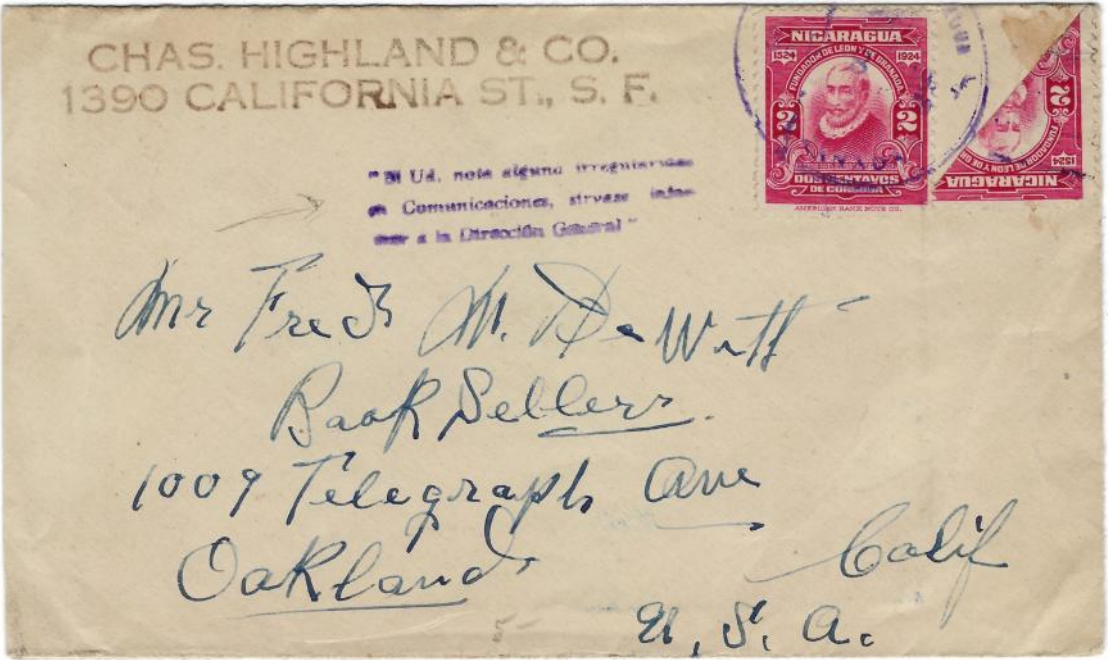 CHAS. HIGHLAND & CO.
1390 CALIFORNIA ST., S. F.
NICARAGUA
1524 1924
FUNDADOR DE LEON Y DE GRANADA
2 2
DOS CENTAVOS
DE CORDOBA
AMERICAN BANK NOTE CO.
2
FUNDADOR DE LEON Y DE GR
1524
NICARAGUA
"Si Ud. nota alguna irregularidad
en Comunicaciones, sirvase infor-
mar a la Dirección General"
Mr Fred M. DeWitt
Book Sellers.
1009 Telegraph Ave
Oakland
Calif
U. S. A.
5-